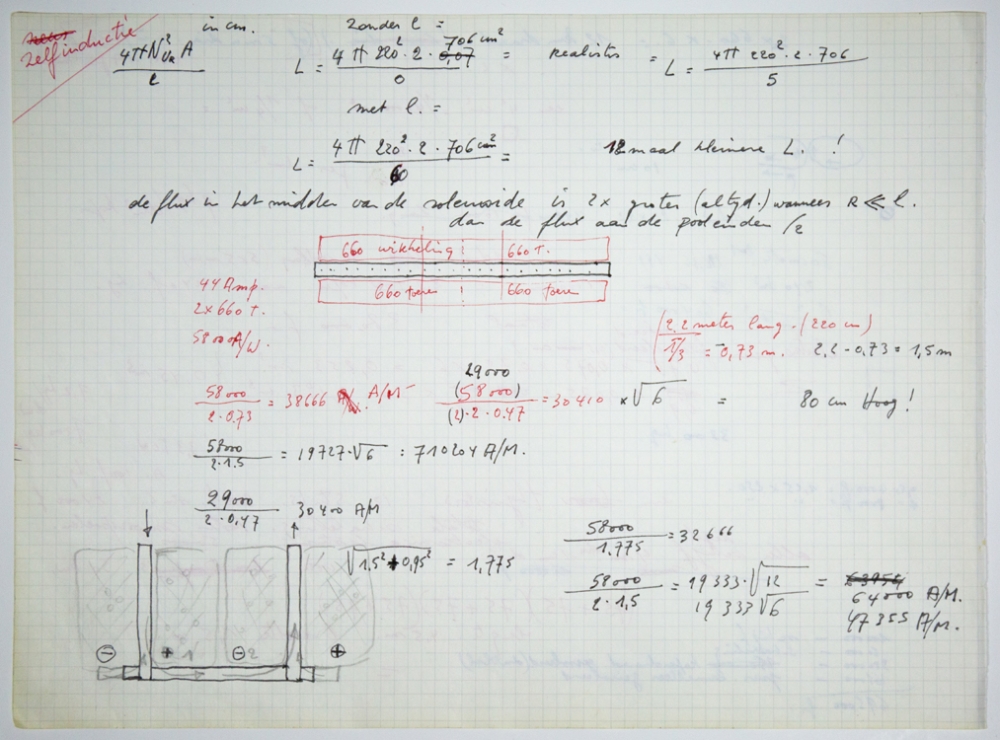 zelfinductie
in cm.
4πN² A / l
zonder l =
L = 4π 220² · 2 · 706 cm² / 0 = realistes = L = 4π 220² · 2 · 706 / 5
met l. =
L = 4π 220² · 2 · 706 cm² / 60 = 12 maal kleinere L. !
de flux in het midden van de solenoide is 2x groter (altyd.) wanneer R ≪ l.
dan de flux aan de pooleinden /2
660 wikkeling 660 t.
660 toeren 660 toeren
44 Amp.
2 x 660 t.
58000 A/W.
(2,2 meter lang. (220 cm)
π/3 = 0,73 m. 2,2 - 0,73 = 1,5 m
58000 / 2 · 0.73 = 38666 A/M
29000
(58000) / (2) · 2 · 0.47 = 30410 x √6 = 80 cm Hoog !
58000 / 2 · 1.5 = 19727 · √6 : 710204 A/M.
29000 / 2 · 0,47 30400 A/M
√1,5² + 0,95² = 1,775
58000 / 1.775 = 32666
58000 / 2 · 1,5 = 19333 · √12 = 64000 A/M.
19333 √6 47355 A/M.
⊖ + 1 ⊖ 2 ⊕